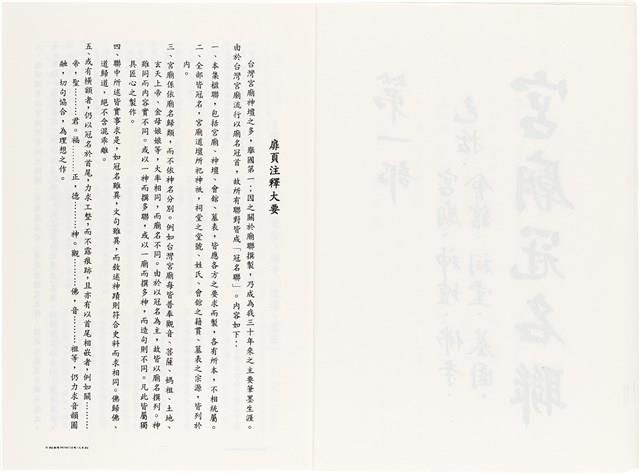 扉頁注釋大要
台灣宮廟神壇之多，舉國第一；因之關於廟聯撰製，乃成為我三十年來之主要筆墨生涯。
由於台灣宮廟流行以廟名冠首，故所有聯對皆成「冠名聯」。內容如下：
一、本集楹聯，包括宮廟、神壇、會館、墓表，皆應各方之要求而製，各有所本，不相統屬。
二、全部皆冠名，宮廟道壇所祀神祇，祠堂之堂號、姓氏、會館之籍貫、墓表之宗源，皆列於
內。
三、宮廟係依廟名歸類，而不依神名分別。例如台灣宮廟每皆普奉觀音、菩薩、媽祖、土地、
玄天上帝、金母娘娘等，大率相同，而廟名不同。由於以冠名為主，故皆以廟名撰列。神
雖同而內容實不同。或以一神而撰多聯，或以一廟而撰多神，而造句則不同。凡此皆屬獨
具匠心之製作。
四、聯中所述皆實事求是，如冠名雖異，文句雖異，而敘述神蹟則符合史料而求相同。佛歸佛、
道歸道，絕不含混乖離。
五、或有橫額者，仍以冠名於首尾，力求工整，而不露痕跡，且亦有以首尾相嵌者，例如關………
帝，聖………君。福………正，德………神。觀………佛，音………祖等，仍力求音韻圓
融，切句協合，為理想之作。
宮廟冠名聯
第一部
包括
會館．祠堂．墓園．
宮廟．神壇．佛寺．